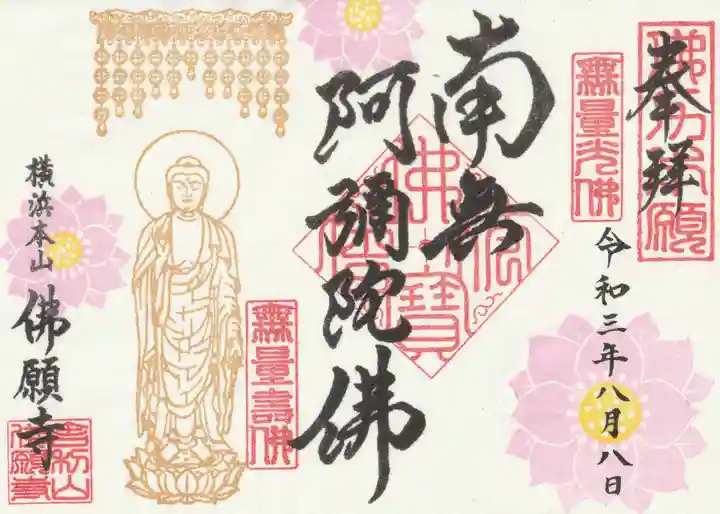 奉拜
無量光佛
令和三年八月八日
南無
阿彌陀佛
佛法僧寶
無量壽佛
横浜本山
佛願寺